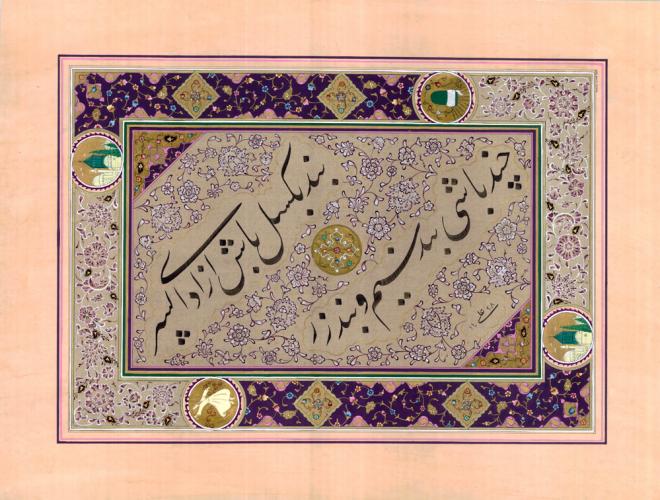 بند بگسل باش آزاد ای پسر
چند باشی بند سیم و بند زر